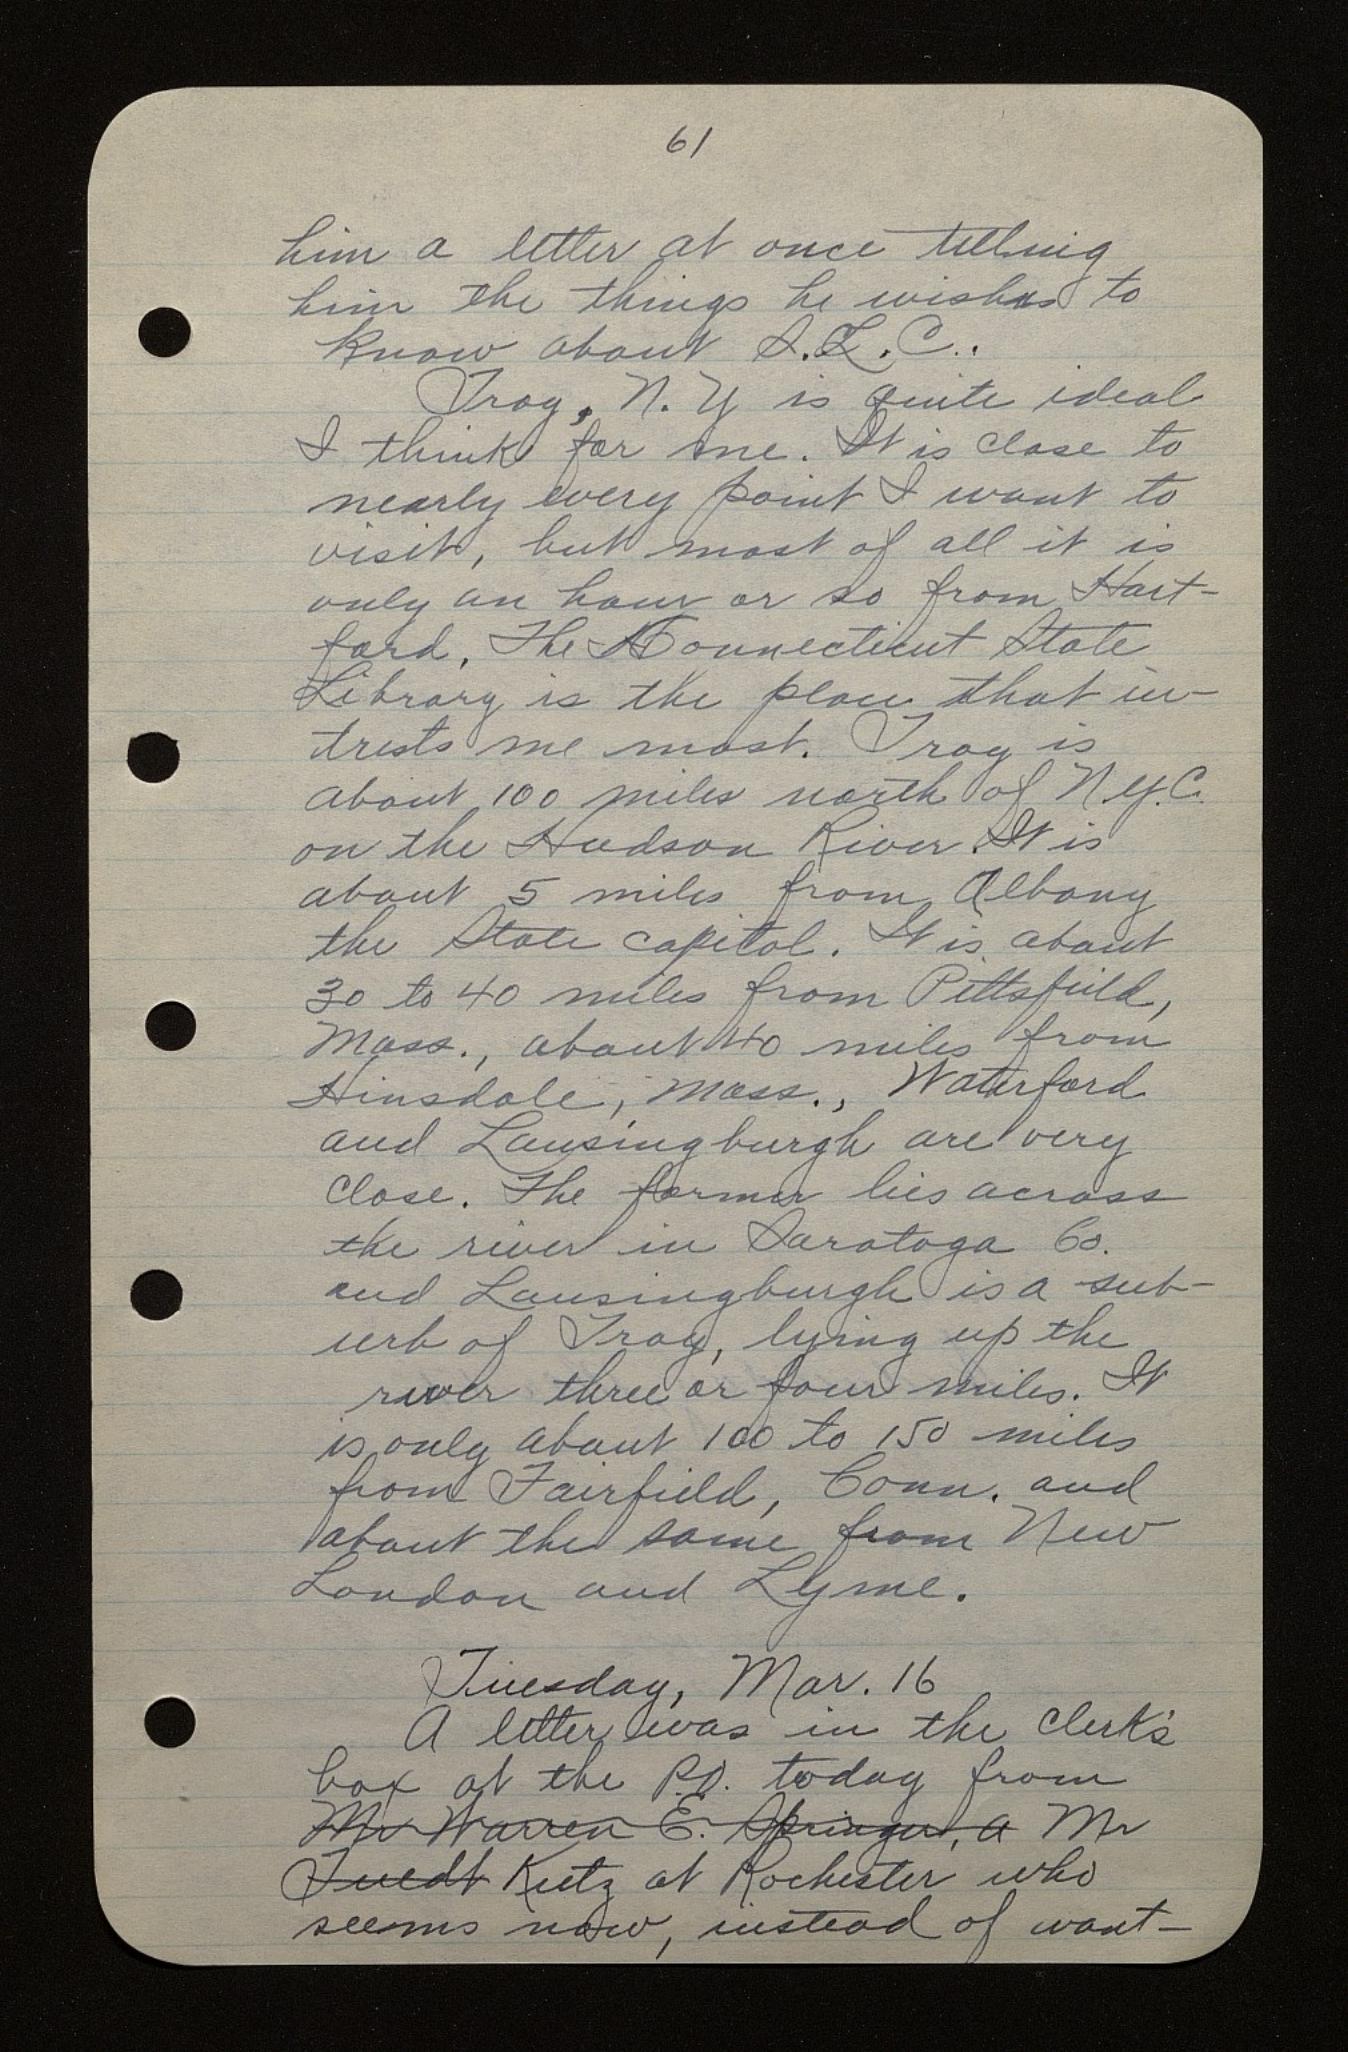 61
him a letter at once telling
him the things he wishes to
know about S.L.C..
Troy, N.Y is quite ideal
I think for me. It is close to
nearly every point I want to
visit, but most of all it is
only an hour or so from Hart-
ford. The Connecticut State
Library is the place that in-
trests me most. Troy is
about 100 miles north of N.Y.C.
on the Hudson River. It is
about 5 miles from Albany
the State capitol. It is about
30 to 40 miles from Pittsfield,
Mass., about 40 miles from
Hinsdale, Mass., Waterford
and Lansingburgh are very
close. The former lies across
the river in Saratoga Co.
and Lansingburgh is a sub-
urb of Troy, lying up the
river three or four miles. It
is only about 100 to 150 miles
from Fairfield, Conn. and
about the same from New
London and Lyme.
Tuesday, Mar. 16
A letter was in the clerk's
box at the P.O. today from
Mr Warren E. Springer, a Mr
Kutz at Rochester who
seems now, instead of want-